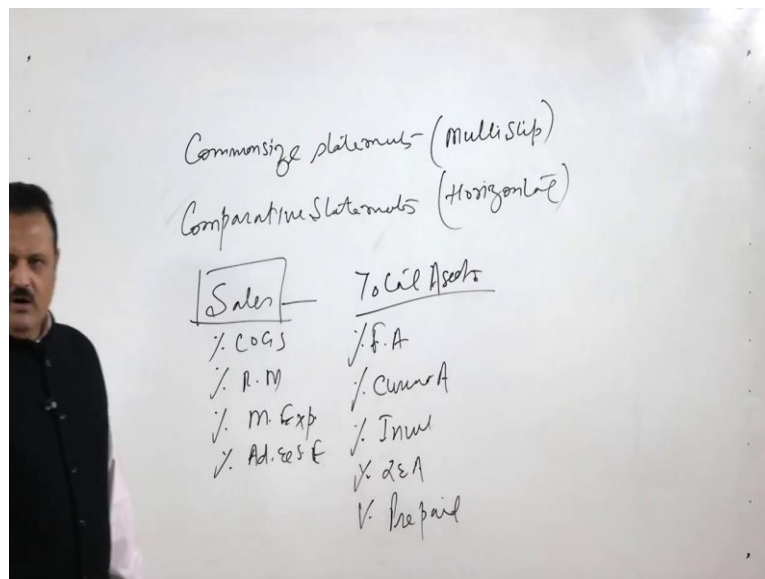 Commonsize statements (Multistip)
Comparative Statements (Horizontal)
Sales
% COGS
% R.M
% M. Exp.
% Ad.
Total Assets
% F.A
% Current A
% Invest
%
% Prepaid